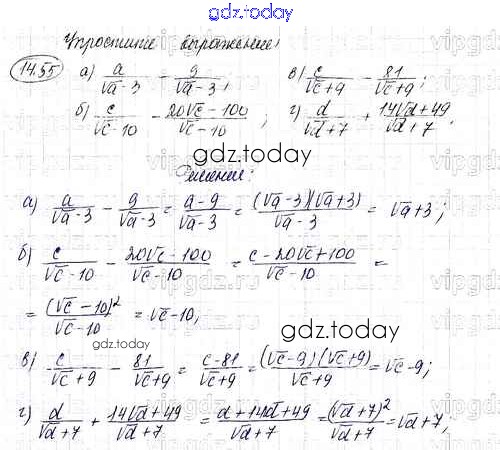 gdz.today
Упростите выражение:
14.55 а) a/(√a-3) - 9/(√a-3); в) c/(√c+9) - 81/(√c+9);
б) c/(√c-10) - (20√c-100)/(√c-10); г) d/(√d+7) + (14√d+49)/(√d+7).
gdz.today
Решение:
а) a/(√a-3) - 9/(√a-3) = (a-9)/(√a-3) = (√a-3)(√a+3)/(√a-3) = √a+3;
б) c/(√c-10) - (20√c-100)/(√c-10) = (c-20√c+100)/(√c-10) =
= (√c-10)²/(√c-10) = √c-10;
gdz.today
в) c/(√c+9) - 81/(√c+9) = (c-81)/(√c+9) = (√c-9)(√c+9)/(√c+9) = √c-9;
г) d/(√d+7) + (14√d+49)/(√d+7) = (d+14√d+49)/(√d+7) = (√d+7)²/(√d+7) = √d+7,
gdz.today